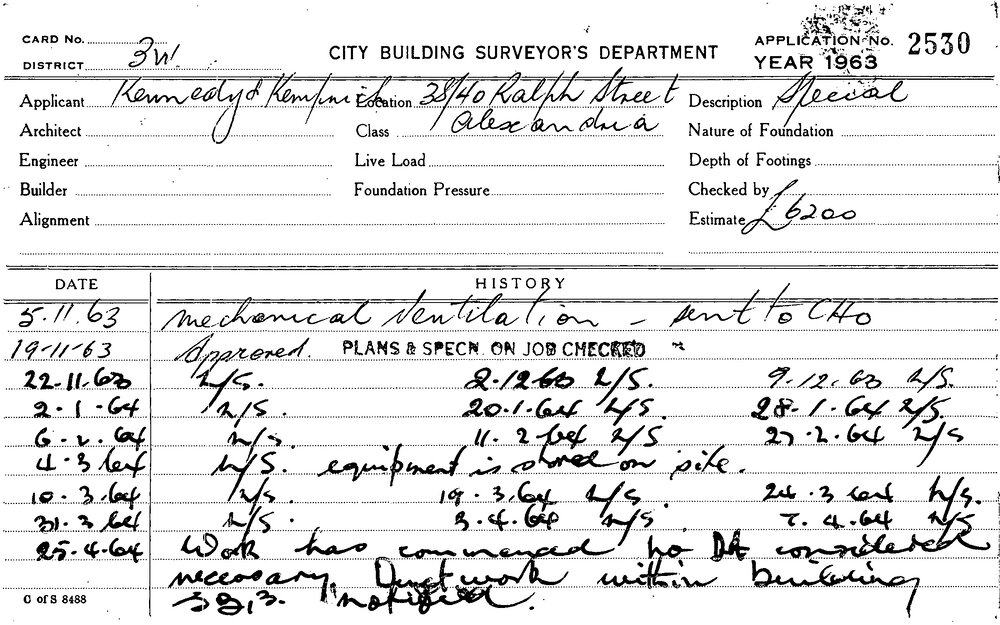 CARD No.
DISTRICT 3W
CITY BUILDING SURVEYOR'S DEPARTMENT
APPLICATION No. 2530
YEAR 1963
Applicant Kennedy & Location 38/40 Ralph Street Description Special
Architect Class Alexandria Nature of Foundation
Engineer Live Load Depth of Footings
Builder Foundation Pressure Checked by
Alignment Estimate £6200
DATE HISTORY
5.11.63 Mechanical Ventilation - sent to CHO
19-11-63 Approved. PLANS & SPECN. ON JOB CHECKED
22.11.63 N/S. 2.12.63 N/S. 9.12.63 N/S.
2.1.64 N/S. 20.1.64 N/S. 28.1.64 N/S.
6.2.64 N/S. 11.2.64 N/S 27.2.64 N/S
4.3.64 N/S. equipment is stored on site.
10.3.64 N/S. 19.3.64 N/S. 24.3.64 N/S.
31.3.64 N/S. 3.4.64 N/S. 7.4.64 N/S
25.4.64 Work has commenced no considered
necessary. Duct work within building
notified.
C of S 8488